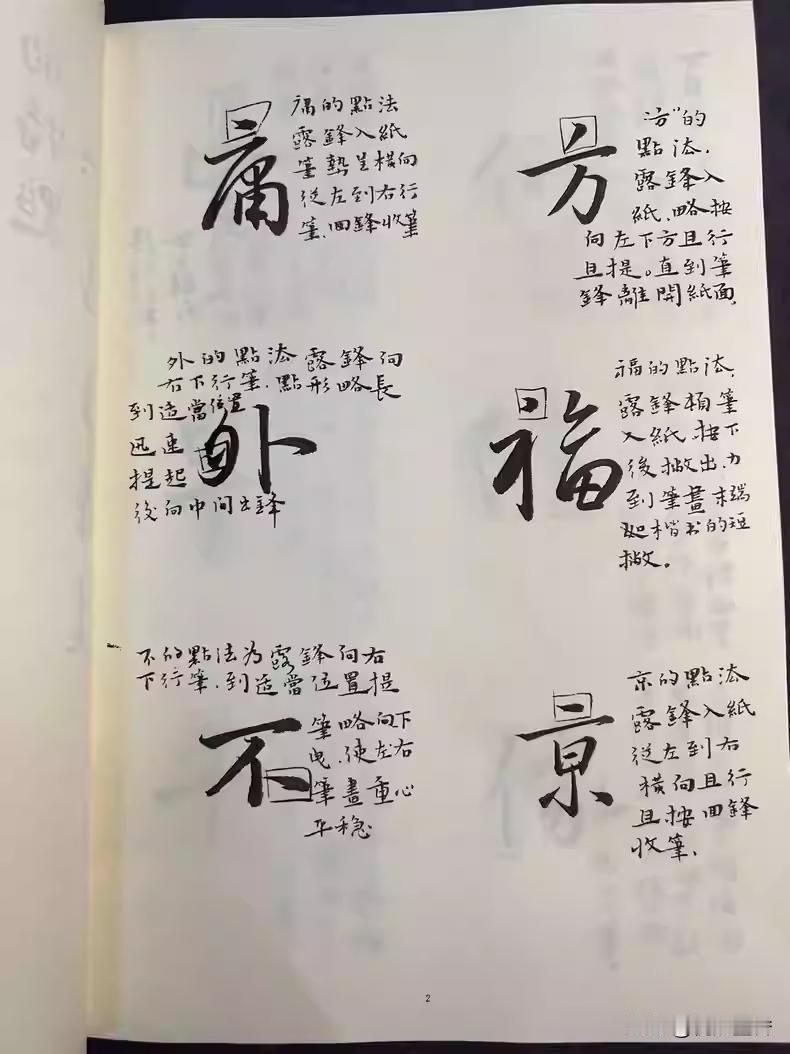 庸
庸的點法
露鋒入紙
筆勢呈橫向
從左到右行
筆.回鋒收筆
方
"方"的
點法.
露鋒入
紙.略按
向左下方且行
且提。直到筆
鋒離開紙面.
外的點法露鋒向
右下行筆.點形略長
到适當位置
迅速
提起
後向中间出鋒
外
福
福的點法,
露鋒頓筆
入紙.按下
後撇出.力
到筆畫末端
如楷书的短
撇。
不的點法为露鋒向右
下行筆.到适當位置提
筆略向下
曳.使左右
筆畫重心
平稳
不
京
京的點法
露鋒入紙
從左到右
橫向且行
且按回鋒
收筆.
2